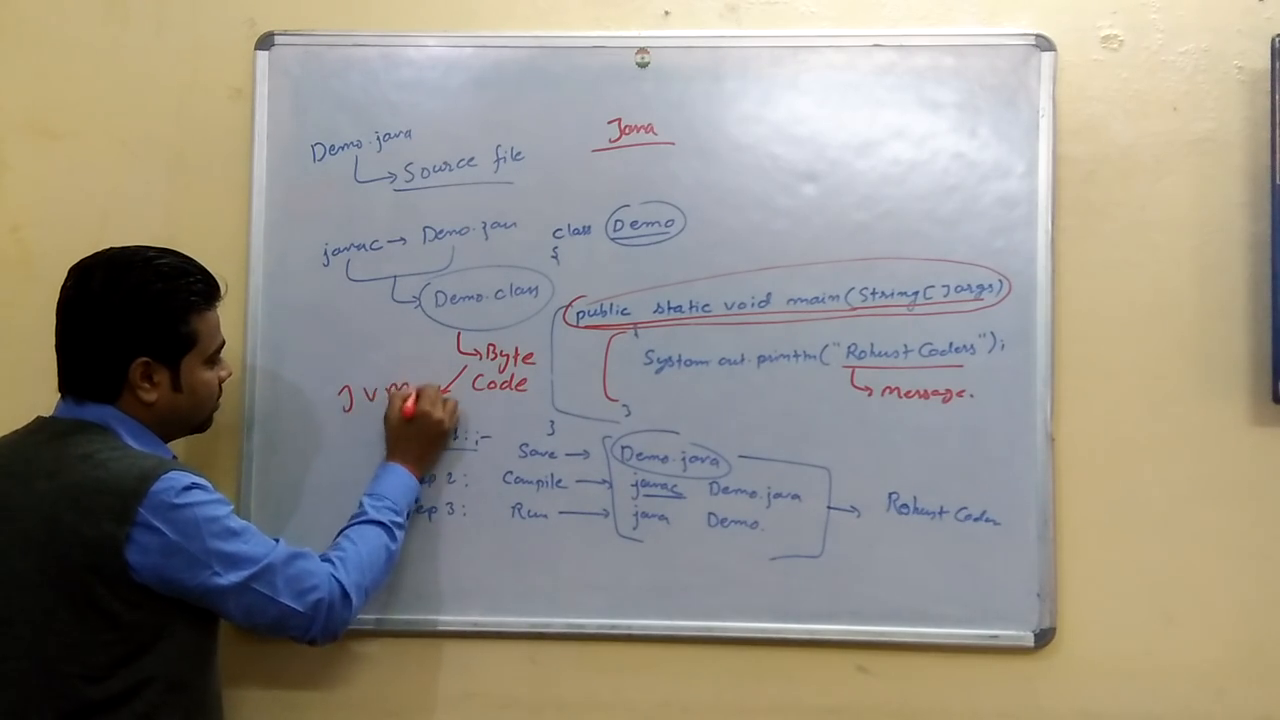 Java
Demo.java
Source file
javac → Demo.java
Demo.class
Byte
Code
JVM
class Demo
{
public static void main(String[] args)
{
System.out.println("Robust Coders");
message.
}
}
1:-
Save → Demo.java
ep 2: Compile → javac Demo.java
ep 3: Run → java Demo.
Robust Coder